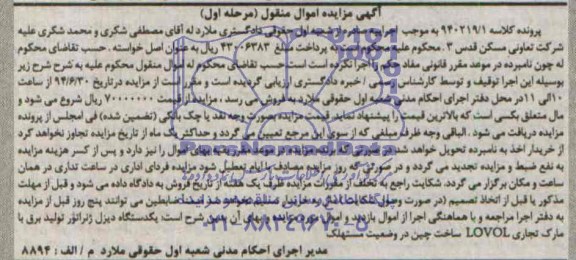 آگهی مزایده اموال منقول (مرحله اول)
پرونده کلاسه ۹۴۰۲۱۹/۱ به موجب اجرائیه صادره از شعبه اول حقوقی دادگستری ملارد له آقای مصطفی شکری و محمد شکری علیه
شرکت تعاونی مسکن قدس ۳ . محکوم علیه محکوم است به پرداخت مبلغ ۴۳۰۰۶۳۸۳ ریال به عنوان اصل خواسته . حسب تقاضای محکوم
له چون نامبرده در موعد مقرر قانونی مفاد حکم را اجرا نکرده است است حسب تقاضای محکوم له اموال منقول محکوم علیه به شرح شرح زیر
بوسیله این اجرا توقیف و توسط کارشناس رسمی / خبره دادگستری ارزیابی گردیده است و مقرر است از مزایده در تاریخ ۹۴/۶/۳۰ از ساعت
۱۰الی ۱۱در محل دفتر اجرای احکام مدنی شعبه اول حقوقی ملارد به فروش می رسد ، مزایده از قیمت ۷۰۰۰۰۰۰۰ ریال شروع می شود و
مال متعلق بکسی است که بالاترین قیمت را پیشنهاد نماید قیمت مزایده بصورت وجه نقد یا چک بانکی (تضمین شده) فی المجلس از برنده
مزایده دریافت می شود . الباقی وجه ظرف مبلغی که از سوی این مرجع تعیین می گردد و حداکثر یک ماه از تاریخ مزایده تجاوز نخواهد کرد
از خریدار اخذ به نامبرده تحویل خواهد شد در صورتی که برنده مزایده در موعد مقرر بقیه بهای اموال را نیز دارد و پس از کسر هزینه مزایده
به نفع ضبط و مزایده تجدید می گردد و در صورتی که روز مزایده مصادف با ایام تعطیل شود مزایده فردای اداری در ساعت تداری در همان
ساعت و مکان برگزار می گردد. شکایت راجع به تخلف از مقررات مزایده ظرف یک هفته از تاریخ فروش به دادگاه داده می شود و قبل از مهلت
مذکور یا قبل از اتخاذ تصمیم (در صورت وصول شکایت) مال به خریدار تسلیم نخواهد شد ضابطین می توانند پنج روز قبل از مزایده
به دفتر اجرا مراجعه و با هماهنگی اجرا از اموال بازدید و اموال مورد مزایده و بهای آن بدین شرح است: یکدستگاه دیزل ژنراتور تولید برق با
مارک تجاری LOVOL ساخت چین در وضعیت مستهلک
مدیر اجرای احکام مدنی شعبه اول حقوقی ملارد م / الف : ۸۸۹۴
۰۲۱-۸۸۳۴۹۶۷۰-۵